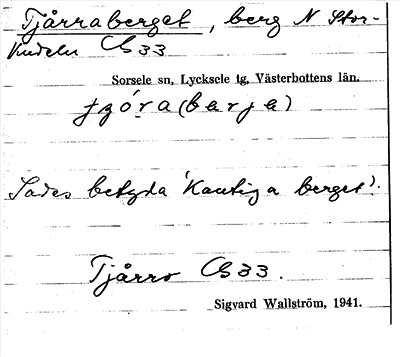 Tjårraberget, berg N Stor-
Cs 33
Sorsele sn, Lycksele tg, Västerbottens län.
Sades betyda 'Kantiga berget'.
Tjårro Cs 33.
Sigvard Wallström, 1941.